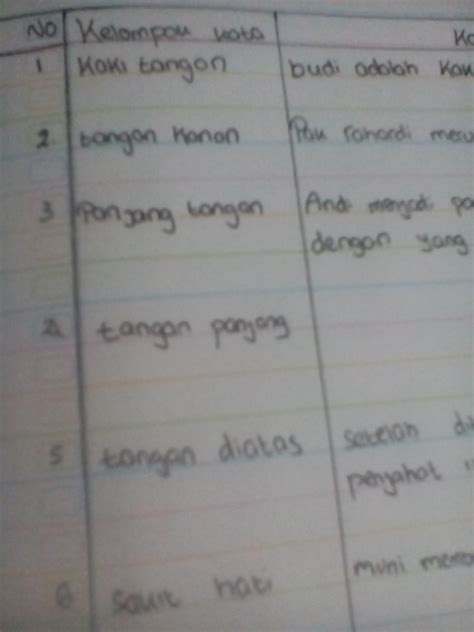 No Kelompok kata
1 Kaki tangan budi adalah
2 tangan kanan Pak rahardi
3 Panjang tangan Andi menjadi
dengan yang
4 tangan panjang
5 tangan diatas setelah
penjahat
6 sakit hati